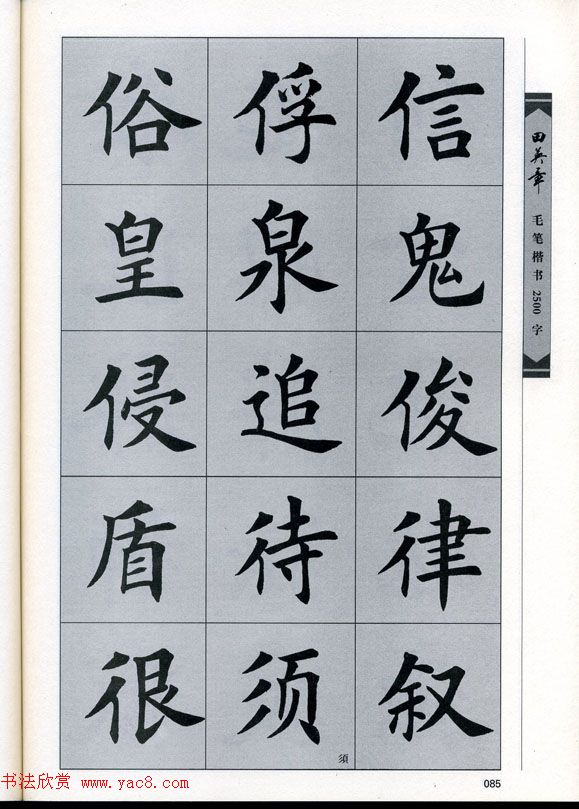 俗俘信
皇泉鬼
侵追俊
盾待律
很须叙
須
田英章
毛笔楷书2500字
085
书法欣赏 www.yac8.com